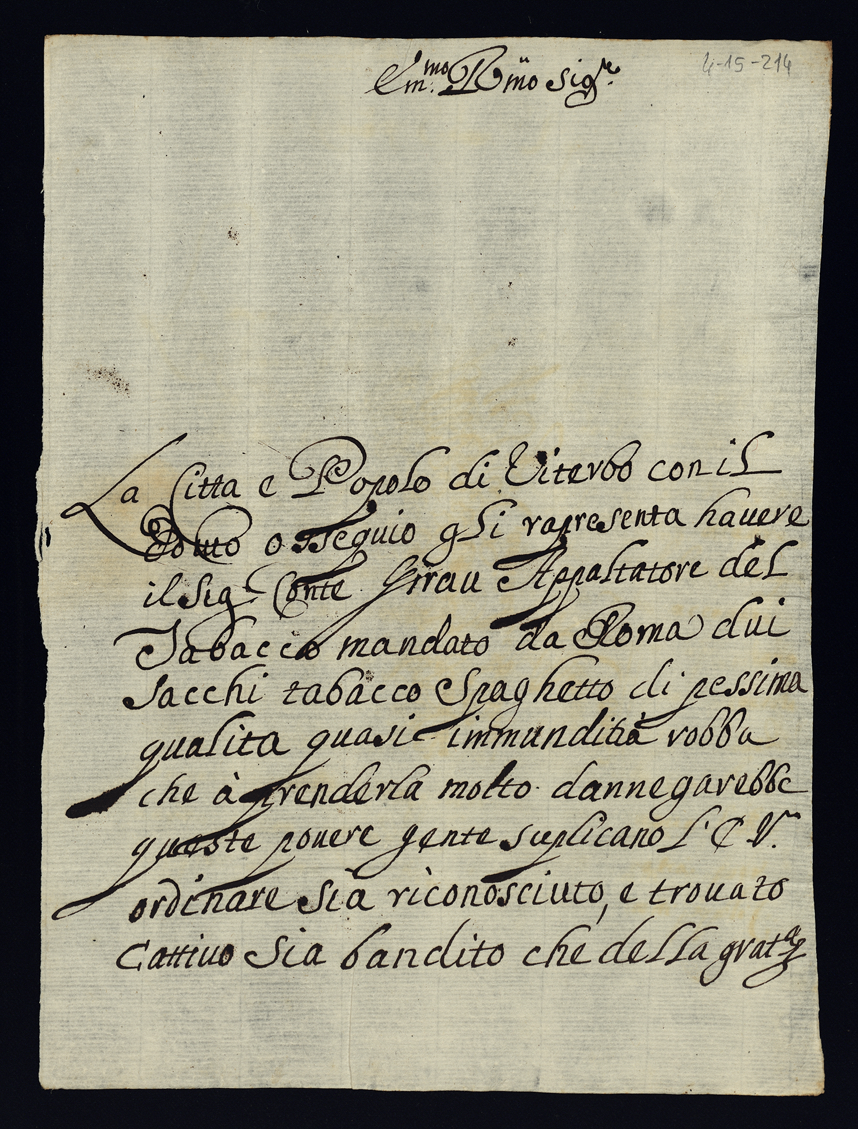 4-15-214
Em.mo Rmo Sig.re
La Citta e Popolo di Viterbo con il
Douto osseguio gli rapresenta hauere
il Sig.r Conte Appaltatore del
Tabacco mandato da Roma dui
sacchi tabacco Spaghetto di pessima
qualita quasi immunditià robba
che à prenderla molto dannegarebbe
queste pouere gente suplicano L' E V.ra
ordinare sia riconosciuto, e trouato
Cattiuo Sia bandito che della grat.a